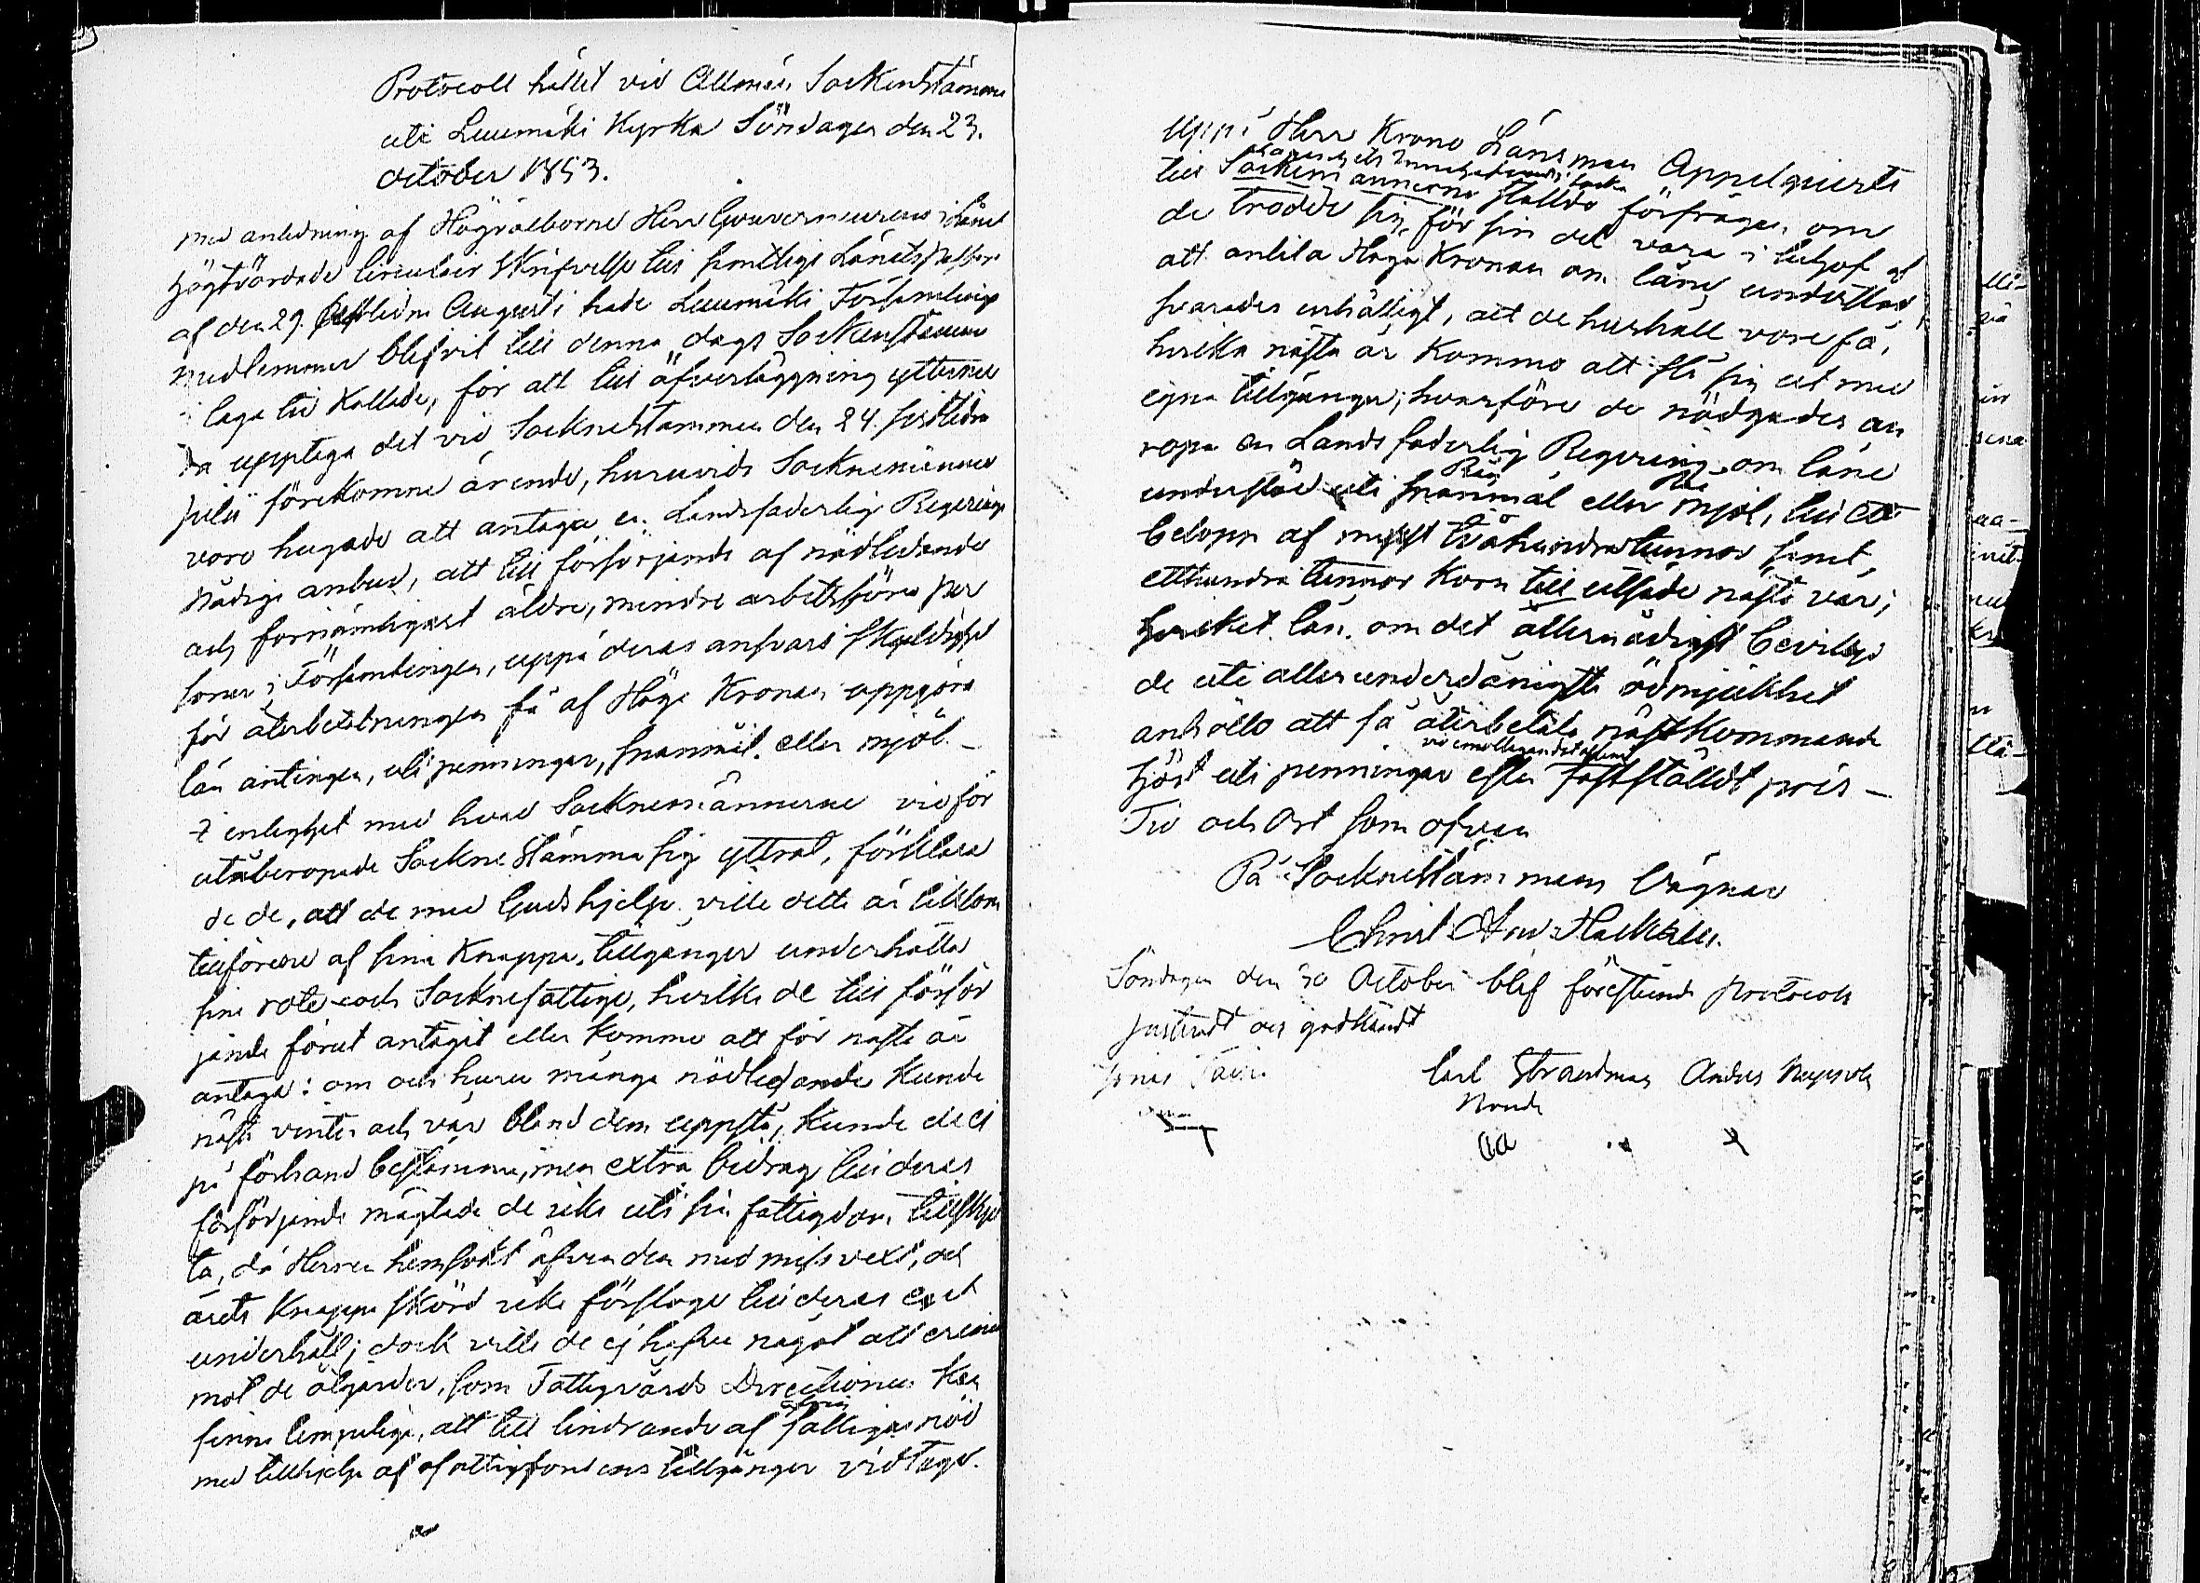 Protocoll hållet vid Allmän Sockenstämma
uti Luumäki Kyrka Söndagen den 23.
October 1853.
Med anledning af Högvälborne Herr Gouverneurens i Länet
högtvördade Circulair Skrifvelse till samtlige Länets
af den 29. sistledne Augusti hade Luumäki Församlings
medlemmar blifvit till denna dags Sockenstämma
laga till kallade, för att till öfverläggning ytterme
ra upptaga det vid Socknestämman den 24. sistledne
Julii förekomne ärende, huruvida Socknemännen
voro hugade att antaga en Landsfaderlig Regerings
nådiga anbud, att till försörjande af nödlidande
och förnämligast äldre, mindre arbetsföre per
soner i Församlingen, uppå deras ansvars skyldighet
för återbetalningen få af Höga Kronan uppgöra
lån antingen, uti penningar, spanmål eller mjöl –
I enlighet med hvad Socknemännerne vid för
utåberopade Socknestämma sig yttrat, förklara
de de, att de med Guds hjelp ville detta år liksom
tillförene af sina knappa tillgångar underhålla
sina rote- och Socknefattige, hvilka de till försör
jande förut antagit eller komme att för nästa år
antaga: om och huru många nödlidande kunde
nästa vinter och vår bland dem uppstå, kunde de ej
på förhand bestämma, men extra bidrag till deras
försörjande mägtade de icke uti sin fattigdom tillskju
ta, då Herren hemsökt äfven dem med missvext, och
årets knappa skörd icke försloge till deras eget
underhåll; dock ville de ej hafva något att erinra
mot de åtgärder, som Fattigvårds Directionen kan
finna lämpeliga, att till lindrande af fattigas nöd
med tillhjelp af fattigfondens tillgångar vidtaga.
Uppå Herr Krono Länsman Appelqvists
till Sockenmännerne stallda förfrågan, om
de trodde sig för sin del vara i behof af
att anlita Höga Kronan om låne understöd,
svarades enhälligt, att de hushåll vore få,
hvilka nästa år kommo att slå sig ut med
egna tillgångar; hvarföre de nödgades an
ropa en Landsfaderlig Regering om låne
understöd uti spanmål eller mjöl, till ett
belopp af tvåhundra tunnor samt
etthundra tunnor Korn till utsäde nästa vår;
hvilket lån, om det allernådigst bevilja
des de uti allerunderdånigste ödmjukhet
anhöllo att få återbetala nästkommande
höst uti penningar efter fastställdt pris –
Tid och Ort som ofvan
På Socknestämmans Vägnar
Söndagen den 30 October blef förestående Protocoll
justeradt och godkändt
Carl Strandman Anders